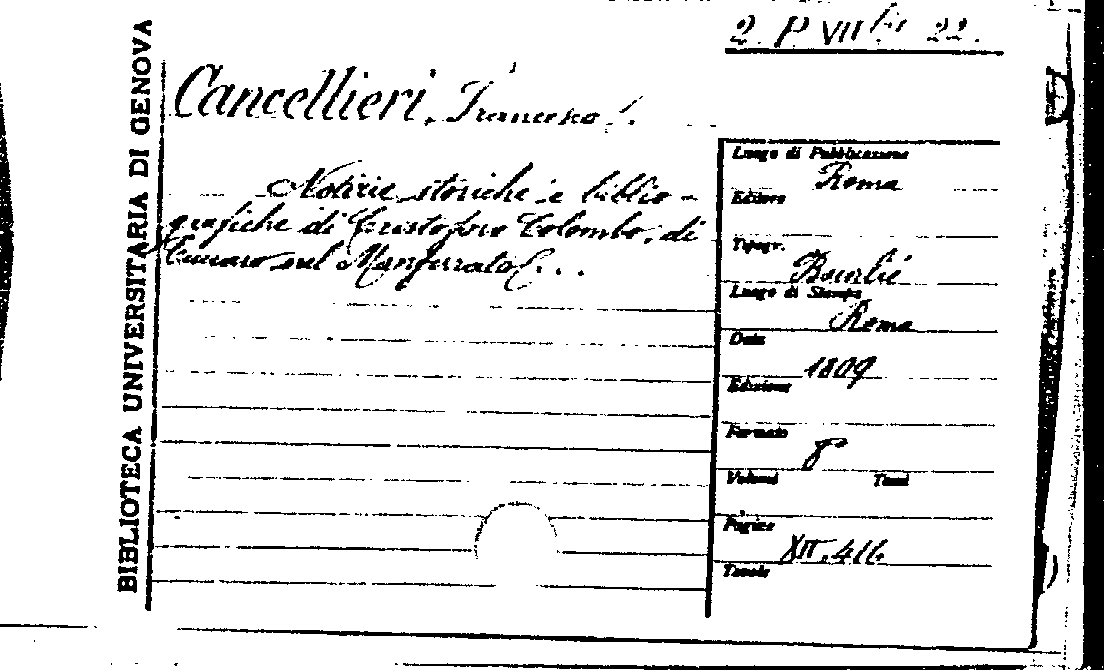 2. P VII bis 22.
BIBLIOTECA UNIVERSITARIA DI GENOVA
Cancellieri, Francesco.
Notizie storiche e biblio-
grafiche di Cristoforo Colombo, di
Cuccaro nel Monferrato...
Luogo di Pubblicazione
Roma
Editore
Tipogr.
Bourlié
Luogo di Stampa
Roma
Data
1809
Edizione
Formato
8°
Volumi Tomi
Pagine
XII. 416
Tavole